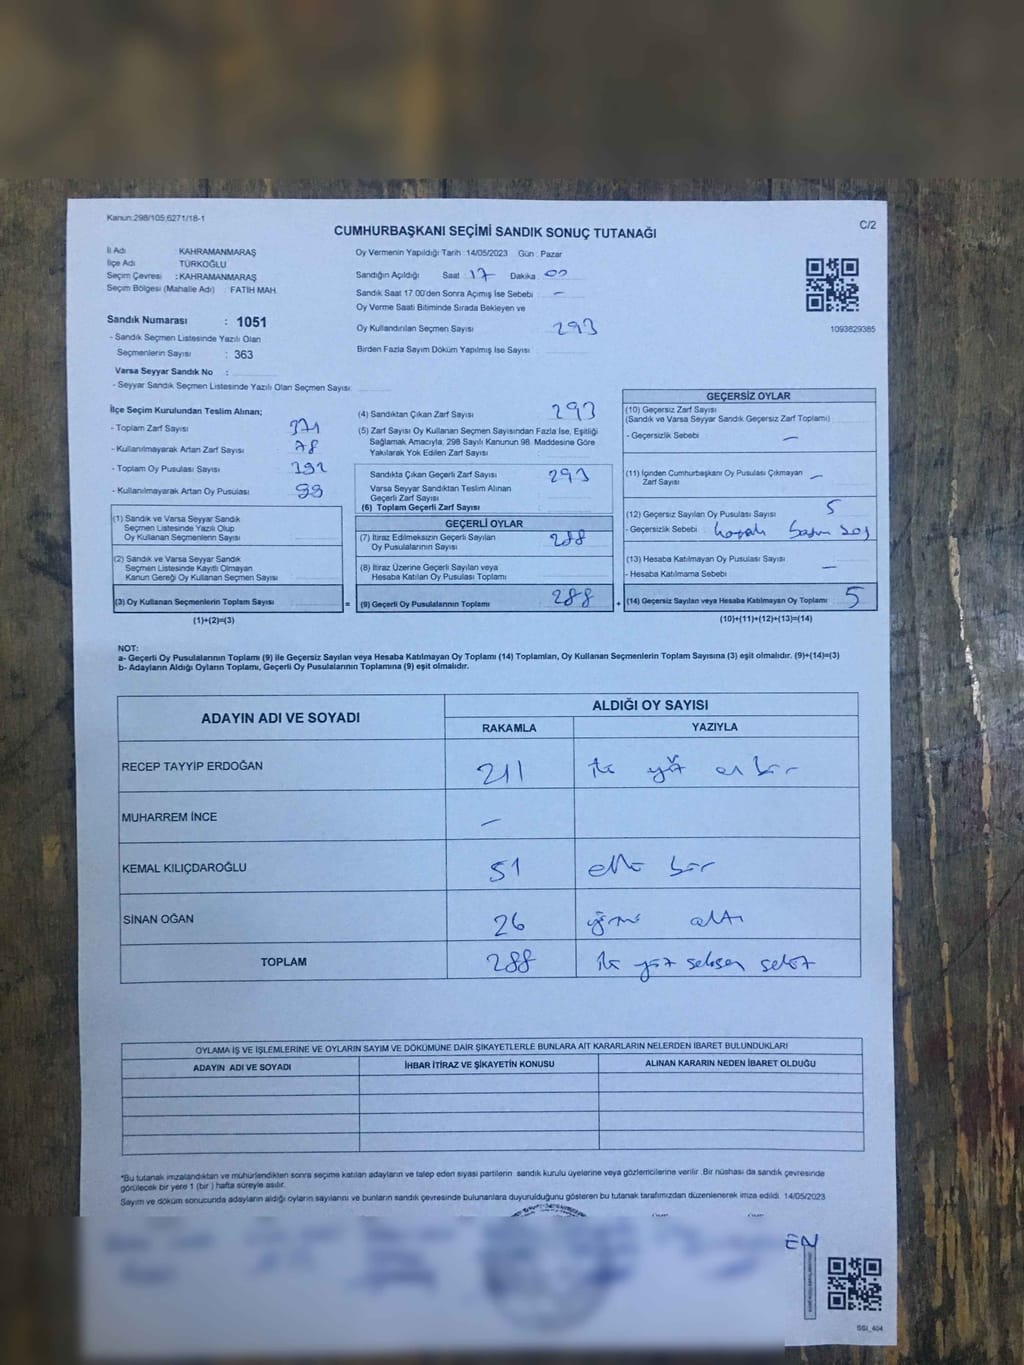 Kanun:298/105,6271/18-1
C/2
CUMHURBAŞKANI SEÇİMİ SANDIK SONUÇ TUTANAĞI
İl Adı : KAHRAMANMARAŞ
İlçe Adı : TÜRKOĞLU
Seçim Çevresi : KAHRAMANMARAŞ
Seçim Bölgesi (Mahalle Adı) : FATİH MAH.
Oy Vermenin Yapıldığı Tarih : 14/05/2023 Gün : Pazar
Sandığın Açıldığı Saat : 17 Dakika : 00
Sandık Saat 17.00'den Sonra Açımış İse Sebebi : –
Oy Verme Saati Bitiminde Sırada Bekleyen ve
Oy Kullandırılan Seçmen Sayısı : 293
Birden Fazla Sayım Döküm Yapılmış İse Sayısı :
1093829385
Sandık Numarası : 1051
- Sandık Seçmen Listesinde Yazılı Olan
Seçmenlerin Sayısı : 363
Varsa Seyyar Sandık No :
- Seyyar Sandık Seçmen Listesinde Yazılı Olan Seçmen Sayısı:
İlçe Seçim Kurulundan Teslim Alınan;
- Toplam Zarf Sayısı : 371
- Kullanılmayarak Artan Zarf Sayısı : 78
- Toplam Oy Pusulası Sayısı : 392
- Kullanılmayarak Artan Oy Pusulası : 99
(1) Sandık ve Varsa Seyyar Sandık
Seçmen Listesinde Yazılı Olup
Oy Kullanan Seçmenlerin Sayısı :
(2) Sandık ve Varsa Seyyar Sandık
Seçmen Listesinde Kayıtlı Olmayan
Kanun Gereği Oy Kullanan Seçmen Sayısı :
(3) Oy Kullanan Seçmenlerin Toplam Sayısı :
(1)+(2)=(3)
(4) Sandıktan Çıkan Zarf Sayısı : 293
(5) Zarf Sayısı Oy Kullanan Seçmen Sayısından Fazla İse, Eşitliği
Sağlamak Amacıyla; 298 Sayılı Kanunun 98. Maddesine Göre
Yakılarak Yok Edilen Zarf Sayısı :
Sandıkta Çıkan Geçerli Zarf Sayısı : 293
Varsa Seyyar Sandıktan Teslim Alınan
Geçerli Zarf Sayısı
(6) Toplam Geçerli Zarf Sayısı :
GEÇERLİ OYLAR
(7) İtiraz Edilmeksizin Geçerli Sayılan
Oy Pusulalarının Sayısı : 288
(8) İtiraz Üzerine Geçerli Sayılan veya
Hesaba Katılan Oy Pusulası Toplamı :
= (9) Geçerli Oy Pusulalarının Toplamı : 288
GEÇERSİZ OYLAR
(10) Geçersiz Zarf Sayısı
(Sandık ve Varsa Seyyar Sandık Geçersiz Zarf Toplamı) :
- Geçersizlik Sebebi : –
(11) İçinden Cumhurbaşkanı Oy Pusulası Çıkmayan
Zarf Sayısı : –
(12) Geçersiz Sayılan Oy Pusulası Sayısı : 5
- Geçersizlik Sebebi :
(13) Hesaba Katılmayan Oy Pusulası Sayısı :
- Hesaba Katılmama Sebebi : –
+ (14) Geçersiz Sayılan veya Hesaba Katılmayan Oy Toplamı : 5
(10)+(11)+(12)+(13)=(14)
NOT:
a- Geçerli Oy Pusulalarının Toplamı (9) ile Geçersiz Sayılan veya Hesaba Katılmayan Oy Toplamı (14) Toplamları, Oy Kullanan Seçmenlerin Toplam Sayısına (3) eşit olmalıdır. (9)+(14)=(3)
b- Adayların Aldığı Oyların Toplamı, Geçerli Oy Pusulalarının Toplamına (9) eşit olmalıdır.
ADAYIN ADI VE SOYADI
ALDIĞI OY SAYISI
RAKAMLA YAZIYLA
RECEP TAYYİP ERDOĞAN 211 iki yüz on bir
MUHARREM İNCE –
KEMAL KILIÇDAROĞLU 51 elli bir
SİNAN OĞAN 26 yirmi altı
TOPLAM 288 iki yüz seksen sekiz
OYLAMA İŞ VE İŞLEMLERİNE VE OYLARIN SAYIM VE DÖKÜMÜNE DAİR ŞİKAYETLERLE BUNLARA AİT KARARLARIN NELERDEN İBARET BULUNDUKLARI
ADAYIN ADI VE SOYADI İHBAR İTİRAZ VE ŞİKAYETİN KONUSU ALINAN KARARIN NEDEN İBARET OLDUĞU
*Bu tutanak imzalandıktan ve mühürlendikten sonra seçime katılan adayların ve talep eden siyasi partilerin sandık kurulu üyelerine veya gözlemcilerine verilir. Bir nüshası da sandık çevresinde
görülecek bir yere 1 (bir) hafta süreyle asılır.
Sayım ve döküm sonucunda adayların aldığı oyların sayılarını ve bunların sandık çevresinde bulunanlara duyurulduğunu gösteren bu tutanak tarafımızdan düzenlenerek imza edildi. 14/05/2023
EN
SSI_404